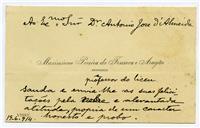 Ao Ex.mo Snr Dr Antonio José d'Almeida
Maximiano Pereira da Fonseca e Aragão
professor do liceu
sauda e envia-lhe as suas felici
tações pela nobre e alevantada
atitude, propria de um caracter
honesto e probo.
13-6-914